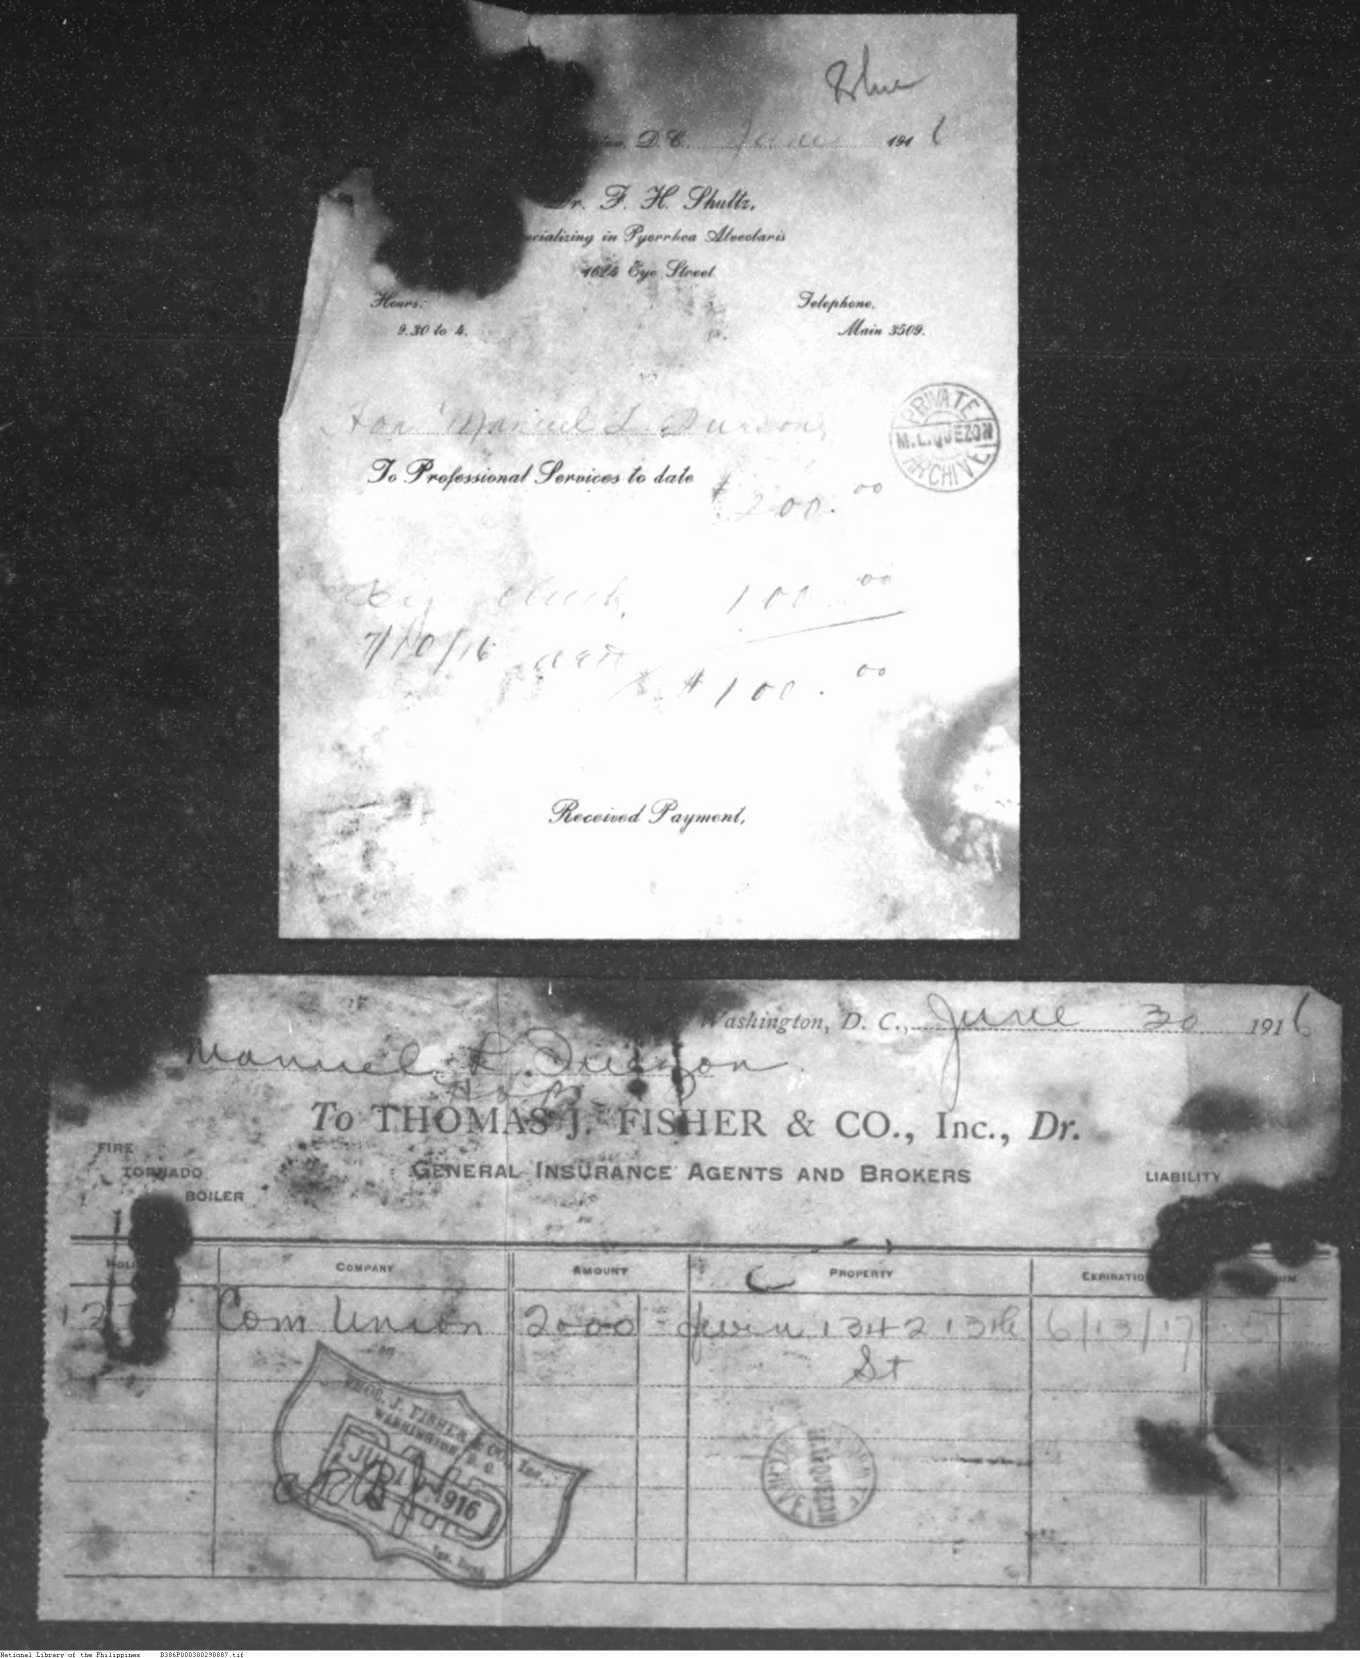 Blue
D. C. June 1916
Dr. F. H. Shultz,
Specializing in Pyorrhea Alveolaris
1624 Eye Street
Hours: Telephone,
9.30 to 4. Main 3509.
Hon Manuel L.
PRIVATE
M. L. QUEZON
ARCHIVE
To Professional Services to date $200.00
By Check 100.00
7/10/16
$100.00
Received Payment,
Washington, D. C., June 30 1916
Manuel L. Quezon
To THOMAS J. FISHER & CO., Inc., Dr.
GENERAL INSURANCE AGENTS AND BROKERS
FIRE
TORNADO LIABILITY
BOILER
COMPANY AMOUNT PROPERTY EXPIRATION
Com Union 2000 1342 13th 6/13/17
St
THOS. J. FISHER & CO., Inc.
WASHINGTON, D. C.
1916
PRIVATE
M. L. QUEZON
ARCHIVE
National Library of the Philippines